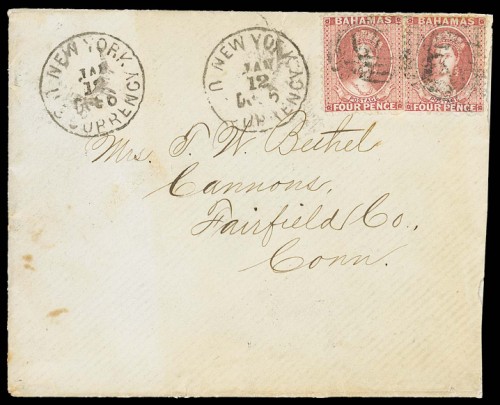 NEW YORK
JAN
12
U.S. CURRENCY
NEW YORK
JAN
12
CURRENCY
BAHAMAS
POSTAGE
FOUR PENCE
BAHAMAS
FOUR PENCE
Mrs. T. W. Bethel
Cannons,
Fairfield Co.,
Conn.